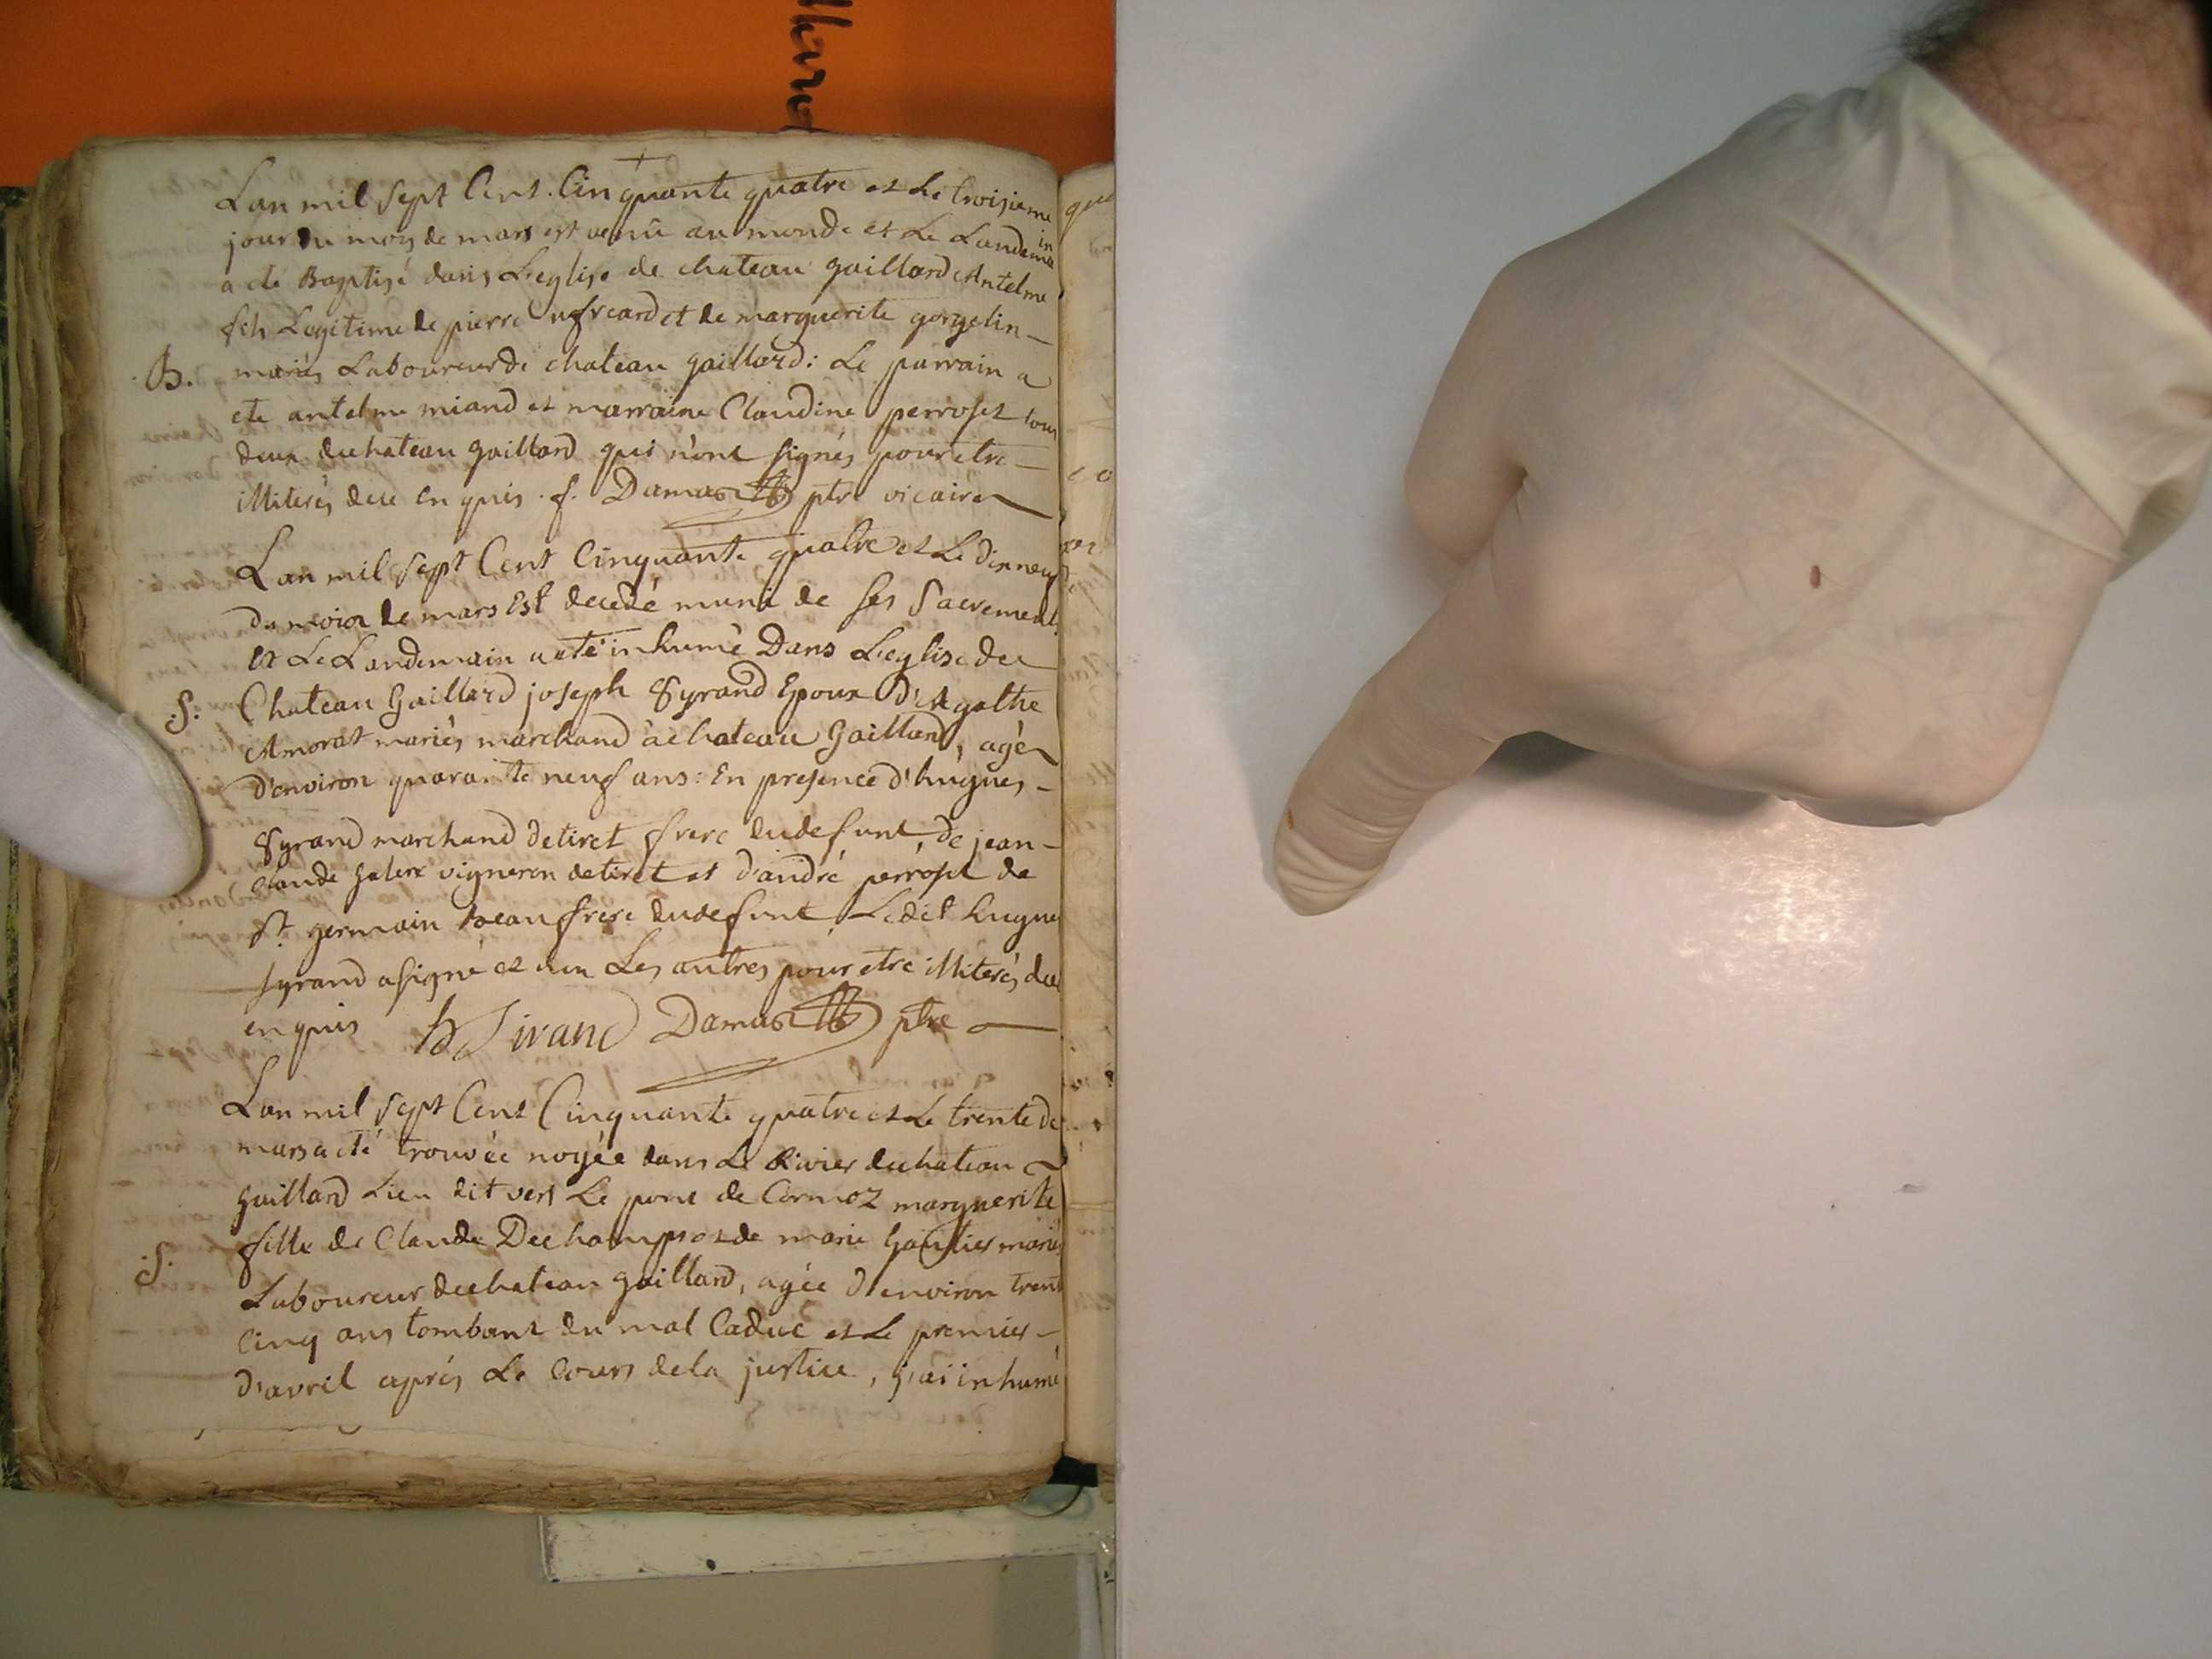 Lan mil sept Cent. Cinquante quatre et Le troisieme
jour du mois de mars est venû au monde et Le Landemain
a eté Baptisé dans L'eglise de chateau gaillard Antelme
fils Legitime de pierre et de marguerite gorgelin
B. mariés Laboureur de chateau gaillard: Le parrain a
ete antelme miand et marraine Claudine perroset tous
deux du chateau gaillard qui n'ont signés pour etre
illiterés de ce enquis. f. Damas ptre vicaire
Lan mil sept Cent Cinquante quatre et Le dixneuf
du mois de mars Est decedé muni de ses Sacrements
et Le Landemain a eté inhumé Dans L'eglise de
S: Chateau Gaillard joseph Syrand Epoux D'Agathe
Amorat mariés marchand à chateau Gaillard, agé
d'environ quarante neuf ans: En presence d'hugues
Syrand marchand de tiret frere du defunt, de jean
claude vigneron de tiret et d'andré perroset de
st. germain beaufrere du defunt. Ledit hugue
syrand a signé et non Les autres pour etre illiterés de ce
enquis h Sirand Damas ptre
Lan mil sept Cent Cinquante quatre et Le trente de
mars a eté trouvée noyée dans Le Rivier du chateau
gaillard Lieu dit vers Le pont de Cormoz marguerite
fille de Claude Dechamps et de marie Gautier mariés
S. Laboureur de chateau gaillard, agée d'environ trent
cinq ans tombant du mal Caduc et Le premier
d'avril aprés Le Cours de la justice, j'ai inhumé